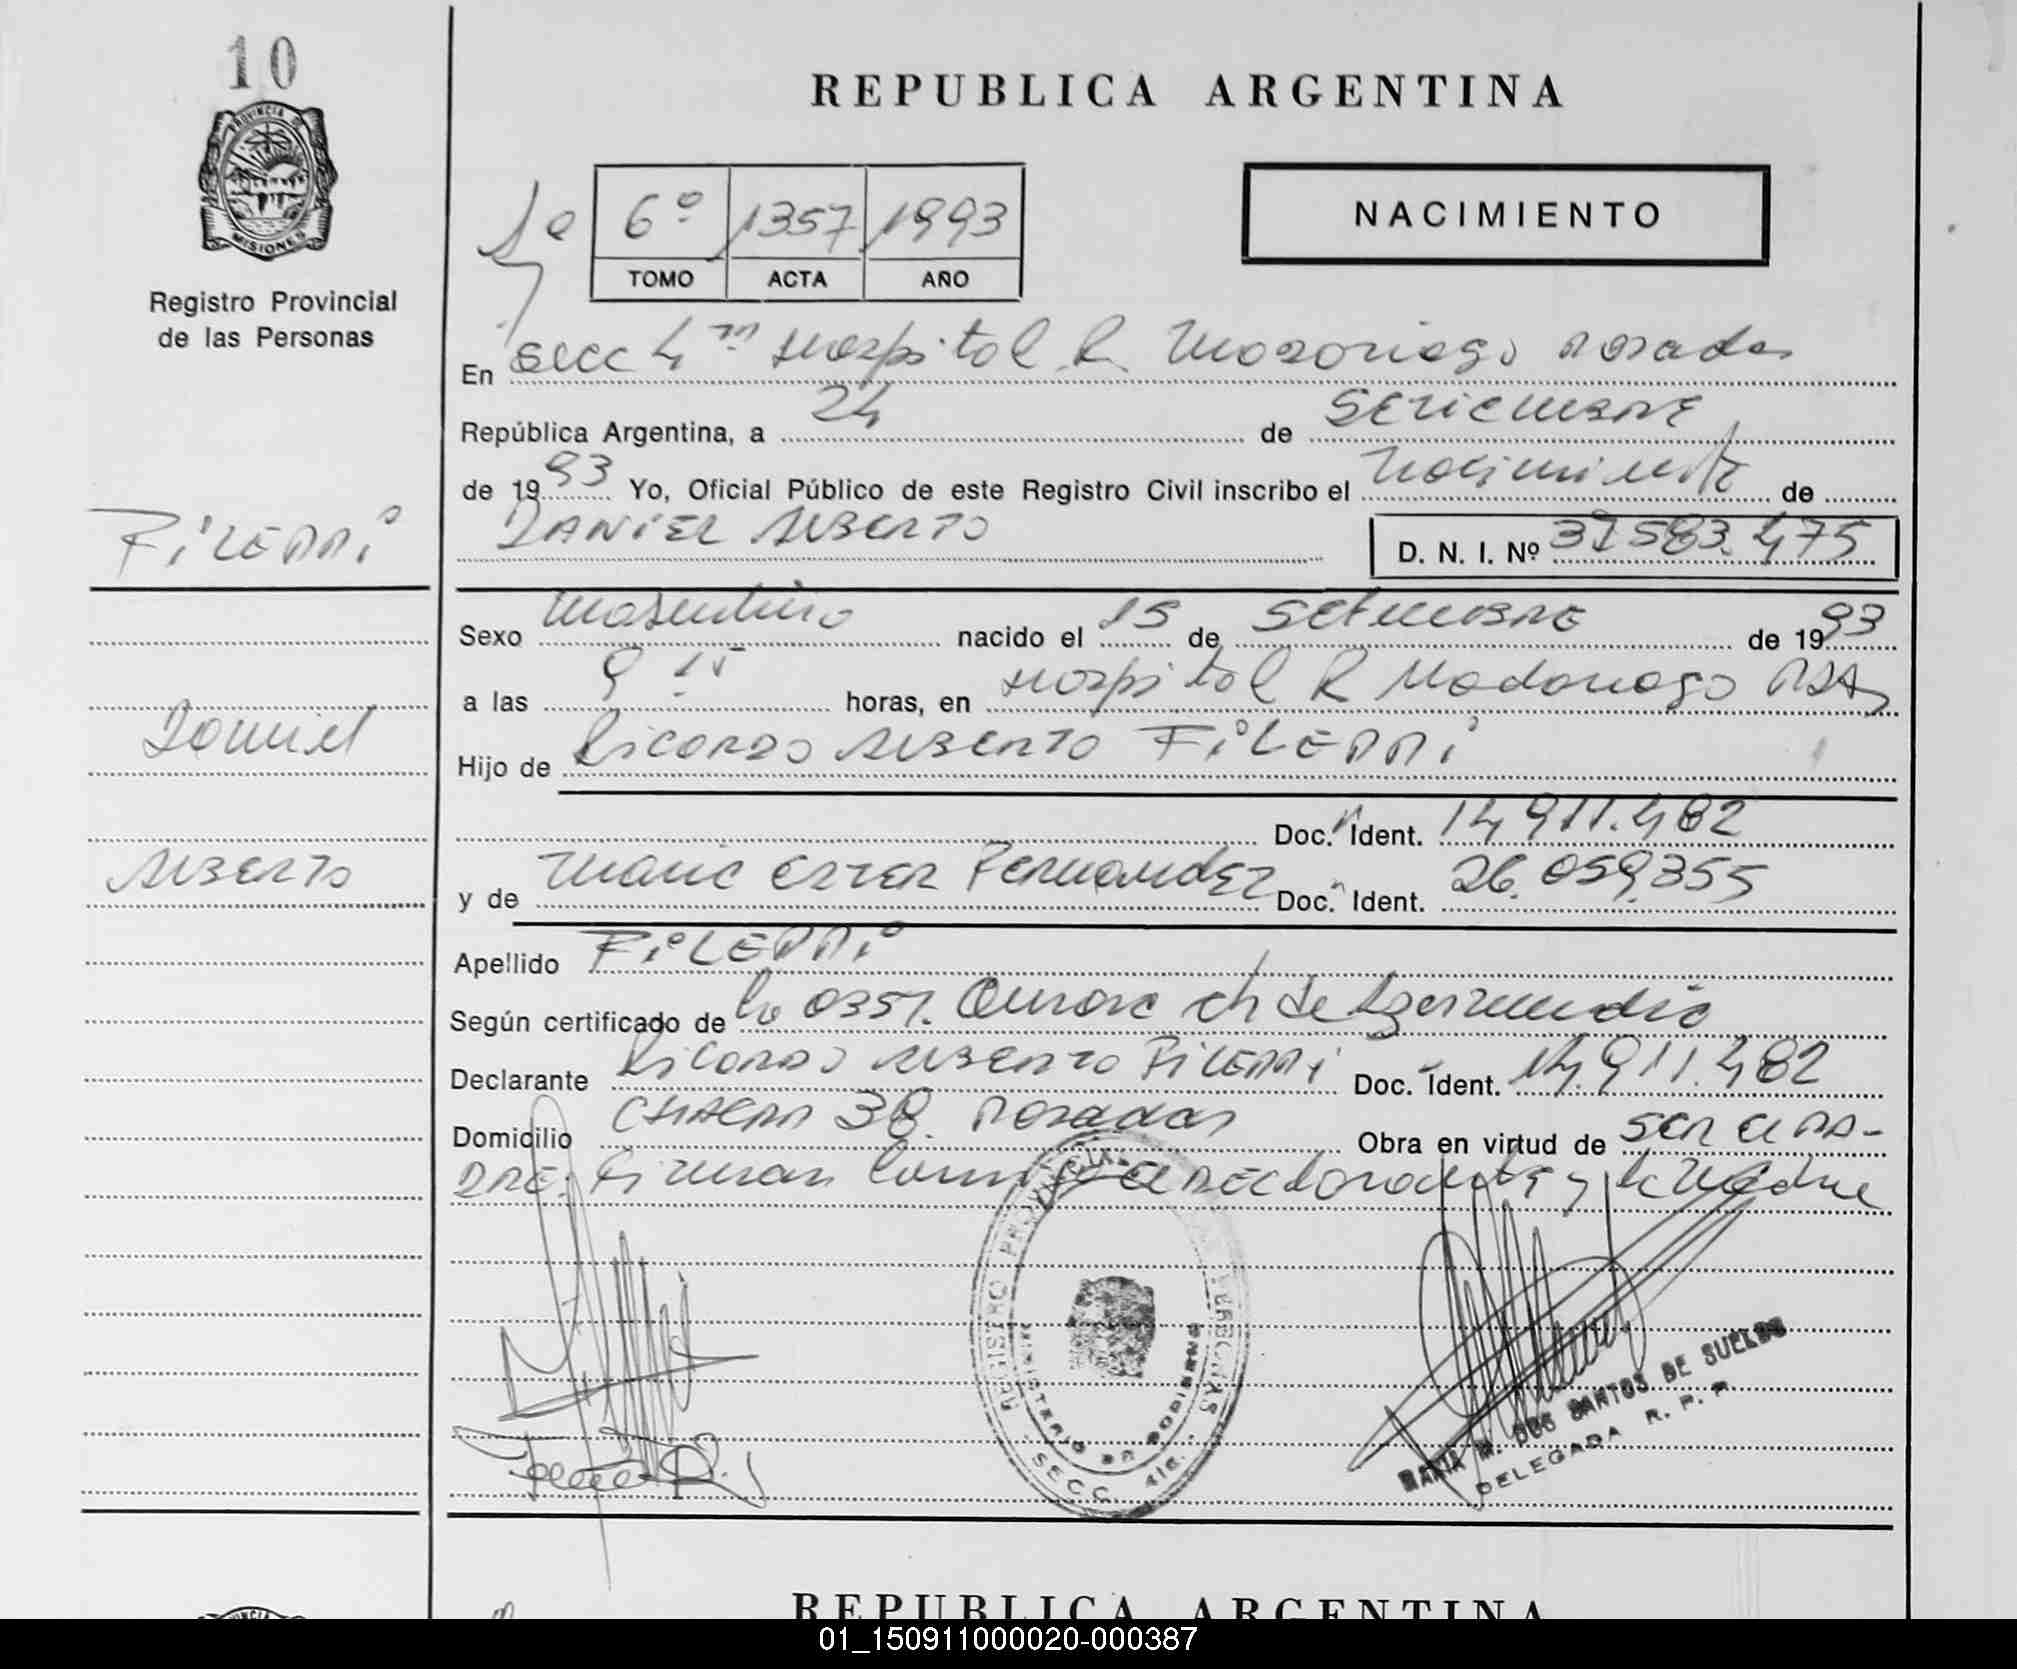 10
PROVINCIA DE
MISIONES
Registro Provincial
de las Personas
REPUBLICA ARGENTINA
6º 1357 1993
TOMO ACTA AÑO
NACIMIENTO
En Secc 4ta Hospital R Madariaga Posadas
República Argentina, a 24 de SETIEMBRE
de 1993 Yo, Oficial Público de este Registro Civil inscribo el Nacimiento de
DANIEL ALBERTO
D. N. I. Nº 37583.475
FILIPPI
Sexo Masculino nacido el 15 de SETIEMBRE de 1993
a las 9 15 horas, en Hospital R Madariaga PDAS
Daniel
Hijo de Ricardo ALBERTO FILIPPI
Doc. Ident. 14.911.482
ALBERTO
y de Maria Ester Fernandez Doc. Ident. 26.059.355
Apellido FILIPPI
Según certificado de la Obst. Aurora Ch de
Declarante Ricardo ALBERTO FILIPPI Doc. Ident. 14.911.482
Domicilio CHACRA 38. Posadas Obra en virtud de SER EL PA-
DRE: Firman conmigo el Declarante y la Madre
REGISTRO PROVINCIAL DE LAS PERSONAS
MINISTERIO DE GOBIERNO
SECC. 4ta.
MARIA M. DOS SANTOS DE SUELDO
DELEGADA R. P. P.
REPUBLICA ARGENTINA
01_150911000020-000387